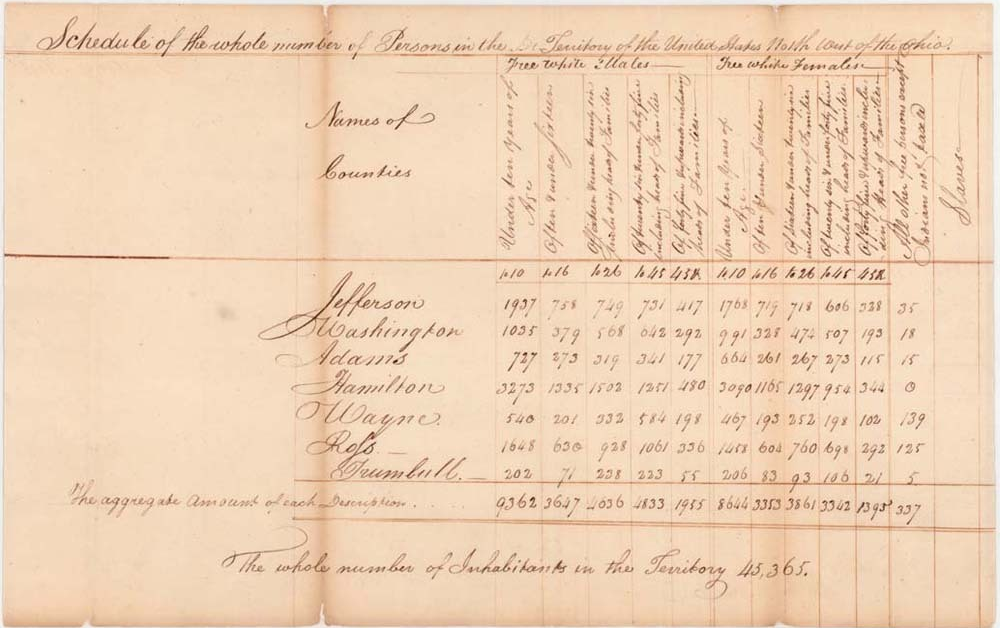 Schedule of the whole number of Persons in the Territory of the United States North West of the Ohio.
Free white Males Free white Females
Names of Counties
Under ten years of Age
Of ten & under sixteen
Of sixteen & under twenty six including heads of Families
Of twenty six & under forty five including heads of Families
Of forty five & upwards including heads of Families
Under ten years of Age
Of ten & under sixteen
Of sixteen & under twenty six including heads of Families
Of twenty six & under forty five including heads of Families
Of forty five & upwards including heads of Families
All other free persons except Indians not taxed
Slaves
to 10 to 16 to 26 to 45 45 & to 10 to 16 to 26 to 45 45 &
Jefferson 1937 758 749 731 417 1768 719 718 606 328 35
Washington 1035 379 568 642 292 991 328 474 507 193 18
Adams 727 273 319 341 177 664 261 267 273 115 15
Hamilton 3273 1335 1502 1251 480 3090 1165 1297 954 344 0
Wayne. 540 201 332 584 198 467 193 252 198 102 139
Ross 1648 630 928 1061 336 1458 604 760 698 292 125
Trumbull. 202 71 238 223 55 206 83 93 106 21 5
The aggregate amount of each Description . . . . 9362 3647 4636 4833 1955 8644 3353 3861 3342 1395 337
The whole number of Inhabitants in the Territory 45,365.